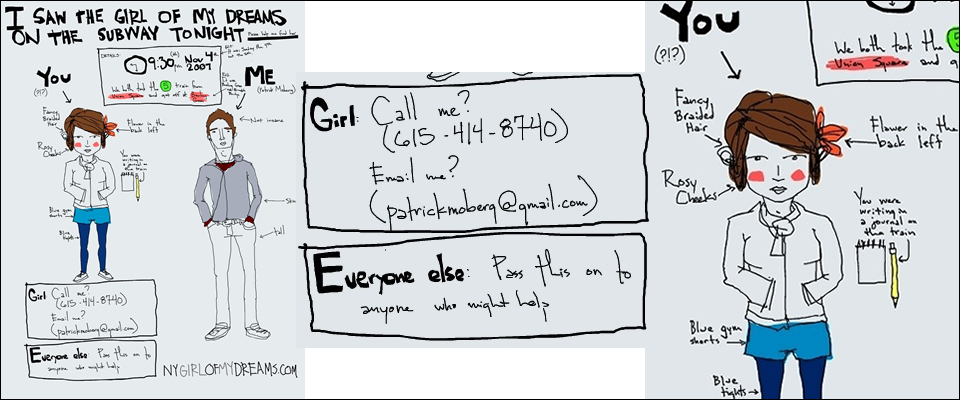 I SAW THE GIRL OF MY DREAMS
ON THE SUBWAY TONIGHT Please help me find her
DETAILS:
9:30pm
Nov 4th
2007
We both took the 5 train from
Union Square and got off at
You
(?!?)
ME
(Patrick Moberg)
Fancy
Braided
Hair
Flower in the
back left
Rosy
Cheeks
You were
writing in
a journal on
the train
Blue gym
shorts
Blue
tights
Not insane
tall
Girl: Call me?
(615-414-8740)
Email me?
(patrickmoberg@gmail.com)
Everyone else: Pass this on to
anyone who might help
NYGIRLOFMYDREAMS.COM
Girl: Call me?
(615-414-8740)
Email me?
(patrickmoberg@gmail.com)
Everyone else: Pass this on to
anyone who might help
You
(?!?)
We both took the 5
Union Square and g
Fancy
Braided
Hair
Flower in the
back left
Rosy
Cheeks
You were
writing in
a journal on
the train
Blue gym
shorts
Blue
tights